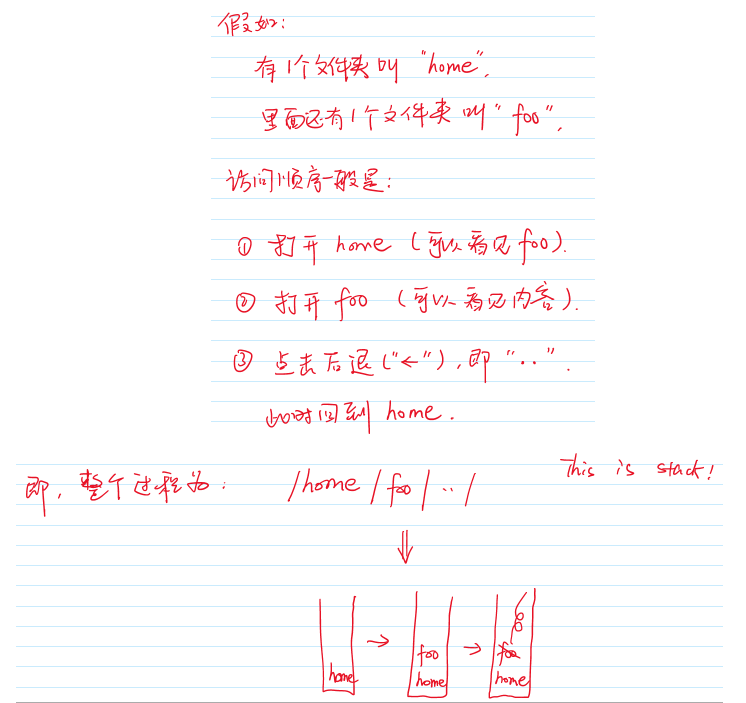 假如:
有1个文件夹叫 "home",
里面还有1个文件夹叫 "foo",
访问顺序一般是:
① 打开 home (可以看见foo).
② 打开 foo (可以看见内容).
③ 点击后退("←"), 即 "..".
此时回到 home.
This is stack!
即, 整个过程为: /home/foo/../
⇓
home → foo home → foo home